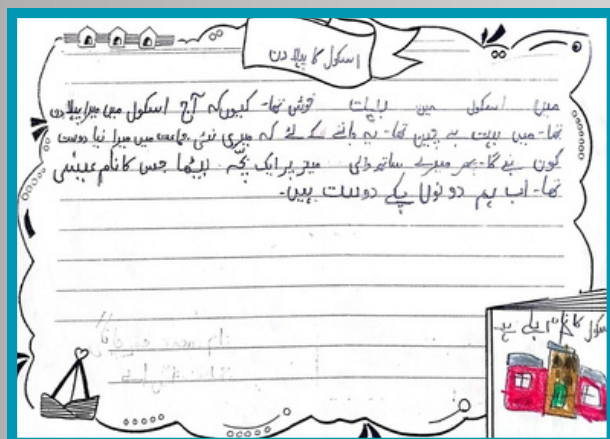 اسکول کا پہلا دن
میں اسکول میں بہت خوش تھا۔ کیوں کہ آج اسکول میں میرا پہلا دن
تھا۔ میں بہت بے چین تھا۔ یہ جاننے کے لئے کہ میری نئی جماعت میں میرا نیا دوست
کون بنے گا۔ پھر میرے ساتھ والی میز پر ایک بچّہ بیٹھا جس کا نام عیسٰی
تھا۔ اب ہم دونوں پکے دوست ہیں۔